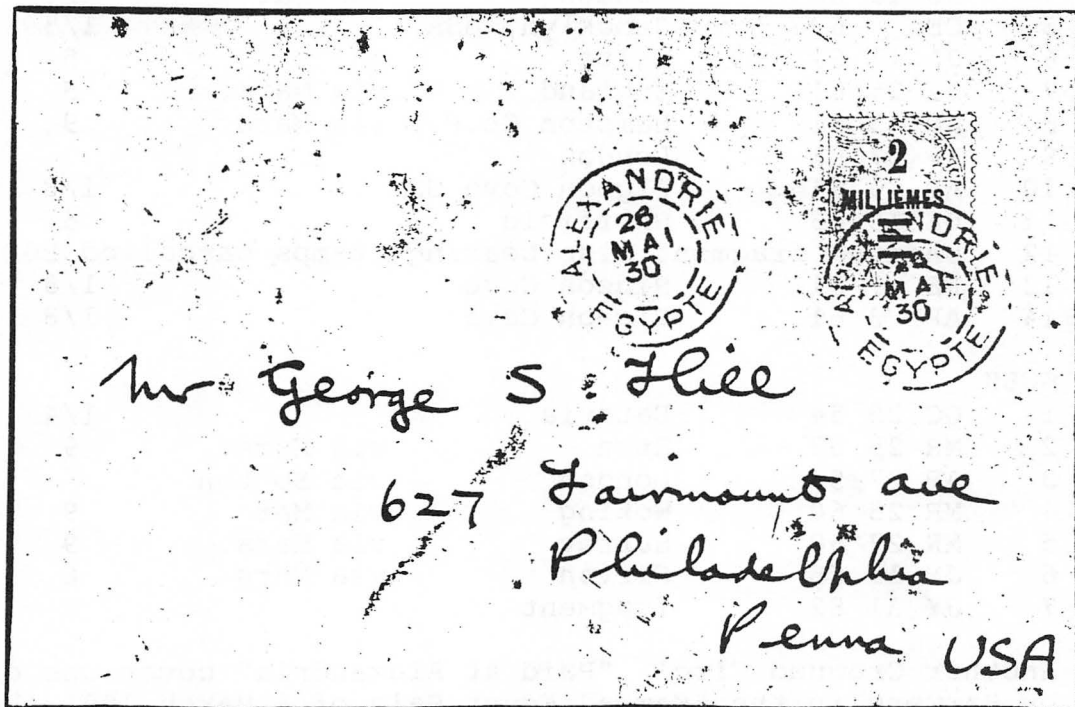 2
MILLIÈMES
ALEXANDRIE
26
MAI
30
EGYPTE
ALEXANDRIE
26
MAI
30
EGYPTE
Mr George S. Hill
627 Fairmount ave
Philadelphia
Penna USA